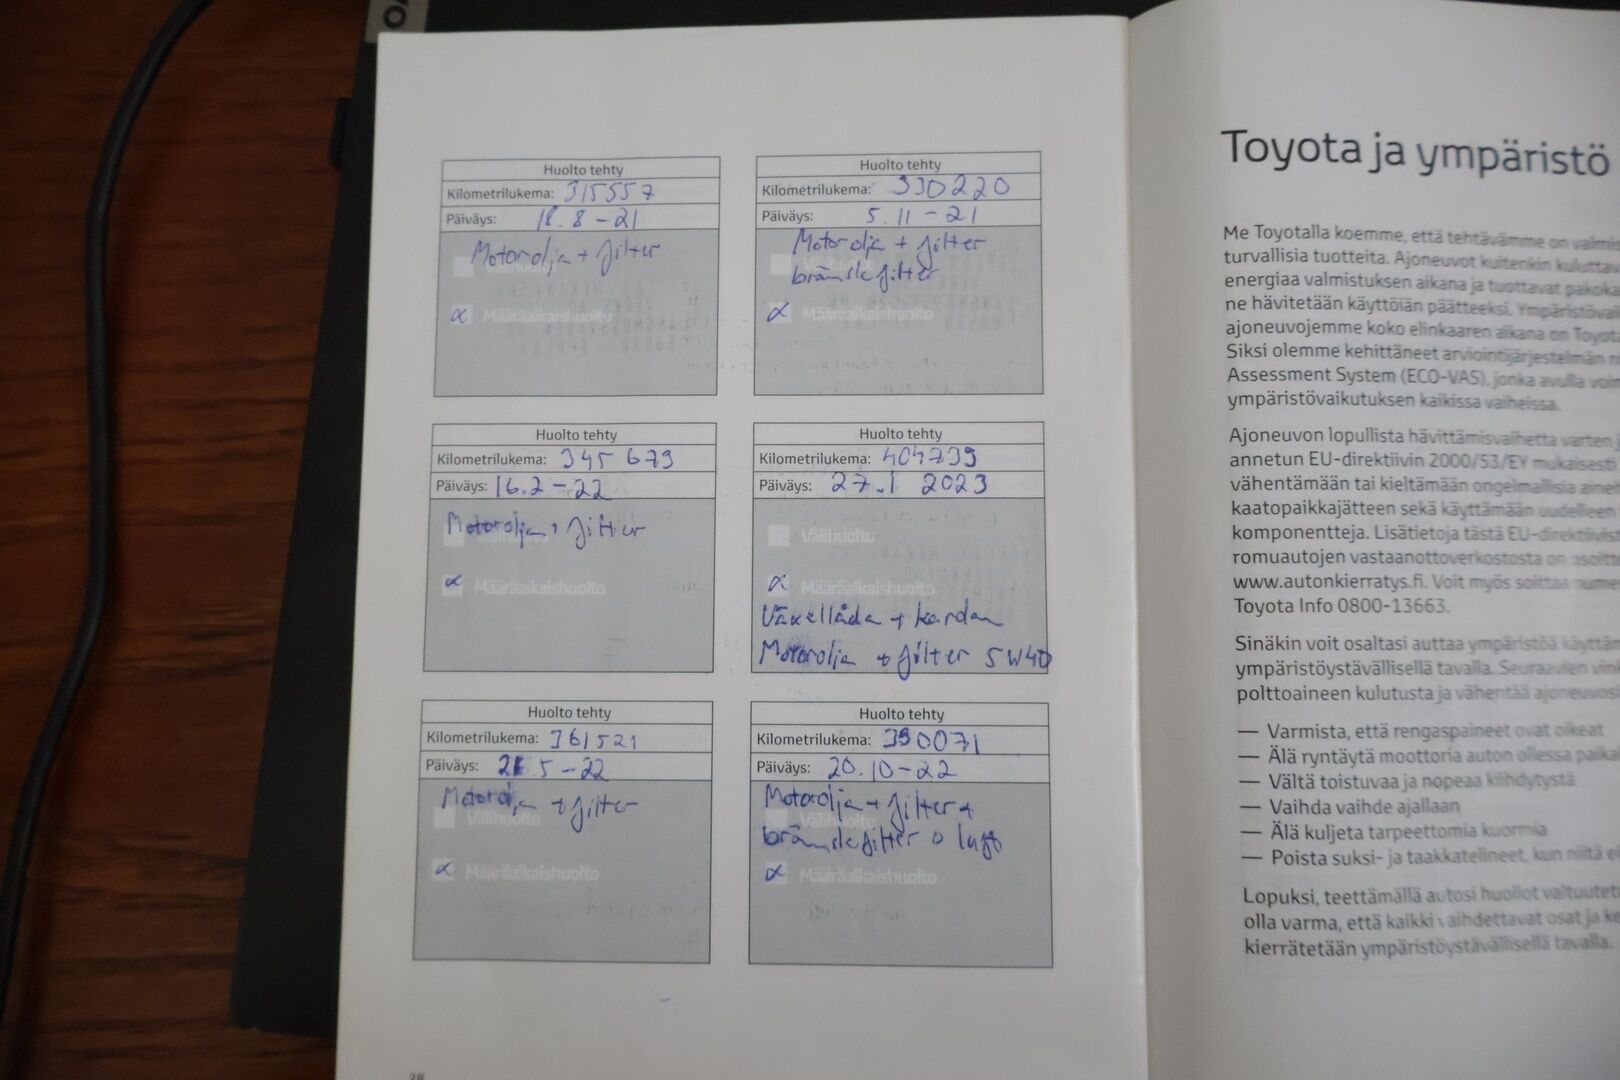 Huolto tehty
Kilometrilukema: 315557
Päiväys: 18.8-21
Motorolja + filter
Välihuolto
Määräaikaishuolto
Huolto tehty
Kilometrilukema: 330220
Päiväys: 5.11-21
Motorolja + filter
bränslefilter
Välihuolto
Määräaikaishuolto
Huolto tehty
Kilometrilukema: 345 679
Päiväys: 16.2-22
Motorolja + filter
Välihuolto
Määräaikaishuolto
Huolto tehty
Kilometrilukema: 404739
Päiväys: 27.1 2023
Välihuolto
Määräaikaishuolto
Växellåda + kardan
Motorolja + filter 5W40
Huolto tehty
Kilometrilukema: 361521
Päiväys: 5-22
Motorolja + filter
Välihuolto
Määräaikaishuolto
Huolto tehty
Kilometrilukema: 390071
Päiväys: 20.10-22
Motorolja + filter +
bränslefilter o luft
Välihuolto
Määräaikaishuolto
28
Toyota ja ympäristö
Me Toyotalla koemme, että tehtävämme on
turvallisia tuotteita. Ajoneuvot kuitenkin kuluttavat
energiaa valmistuksen aikana ja tuottavat
ne hävitetään käyttöiän päätteeksi.
ajoneuvojemme koko elinkaaren aikana on
Siksi olemme kehittäneet arviointijärjestelmän
Assessment System (ECO-VAS), jonka avulla
ympäristövaikutuksen kaikissa vaiheissa.
Ajoneuvon lopullista hävittämisvaihetta varten
annetun EU-direktiivin 2000/53/EY mukaisesti
vähentämään tai kieltämään ongelmallisia
kaatopaikkajätteen sekä käyttämään uudelleen
komponentteja. Lisätietoja tästä EU-direktiivistä
romuautojen vastaanottoverkostosta on
www.autonkierratys.fi. Voit myös soittaa
Toyota Info 0800-13663.
Sinäkin voit osaltasi auttaa ympäristöä
ympäristöystävällisellä tavalla. Seuraavien
polttoaineen kulutusta ja vähentää
— Varmista, että rengaspaineet ovat oikeat
— Älä ryntäytä moottoria auton ollessa
— Vältä toistuvaa ja nopeaa kiihdytystä
— Vaihda vaihde ajallaan
— Älä kuljeta tarpeettomia kuormia
— Poista suksi- ja taakkatelineet, kun niitä
Lopuksi, teettämällä autosi huollot
olla varma, että kaikki vaihdettavat osat ja
kierrätetään ympäristöystävällisellä tavalla.